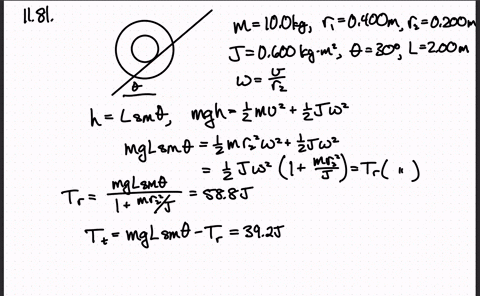 11.81.
m = 10.0 kg, r₁ = 0.400m, r₂ = 0.200m
J = 0.600 kg·m², θ = 30°, L = 2.00m
ω = v/r₂
θ
h = L sinθ, mgh = ½mv² + ½Jω²
mgL sinθ = ½mr₂²ω² + ½Jω²
= ½Jω² (1 + mr₂²/J) = Tr( " )
Tr = mgL sinθ / (1 + mr₂²/J) = 58.8J
Tt = mgL sinθ - Tr = 39.2J